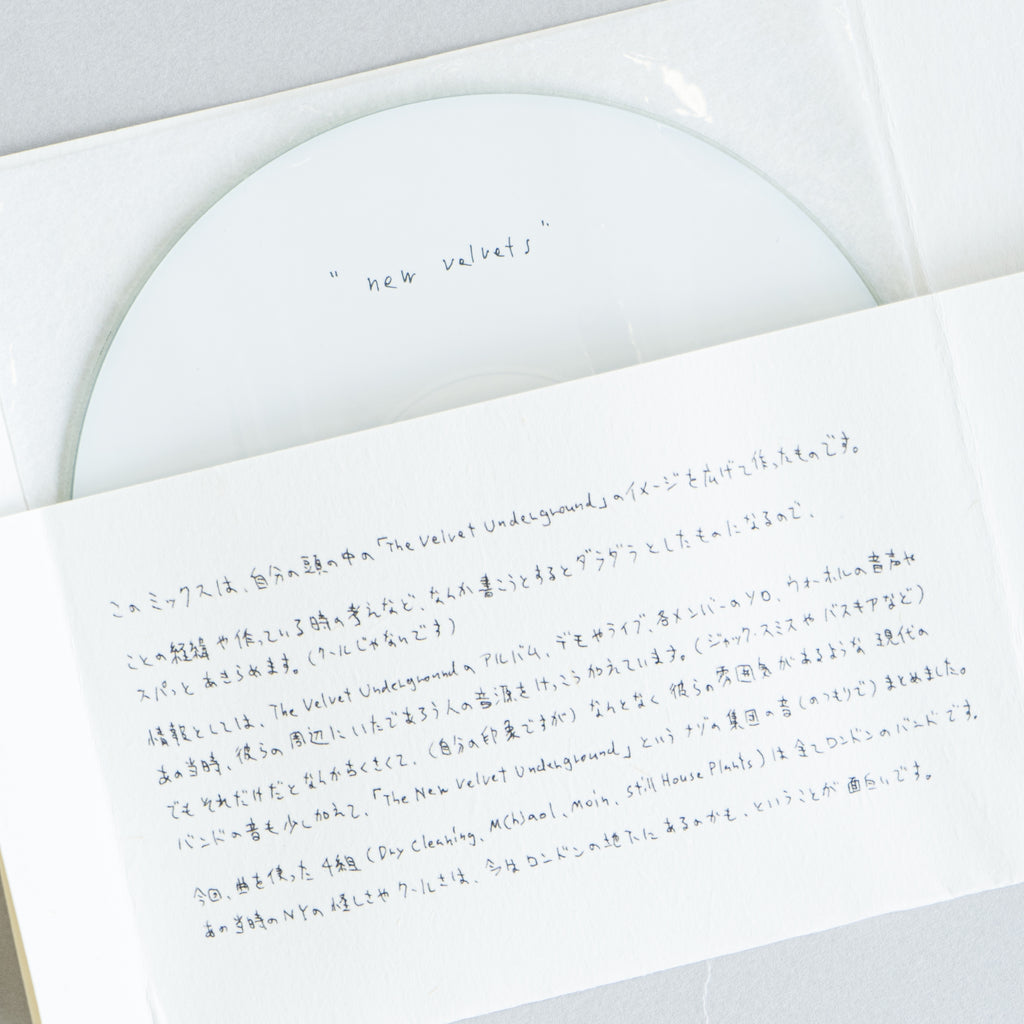 " new velvets "
このミックスは、自分の頭の中の「The Velvet Underground」のイメージを広げて作ったものです。
ことの経緯や作っている時の考えなど、なんか書こうとするとダラダラとしたものになるので、
スパッとあきらめます。(クールじゃないです)
情報としては、The Velvet Undergroundのアルバム、デモやライブ、各メンバーのソロ、ウォーホルの音声や
あの当時、彼らの周辺にいたであろう人の音源をけっこう加えています。(ジャック・スミスやバスキアなど)
でもそれだけだとなんか古くさくて、(自分の印象ですが)なんとなく彼らの雰囲気があるような現代の
バンドの音も少し加えて、「The New Velvet Underground」というナゾの集団の音(のつもりで)まとめました。
今回、曲を使った4組(Dry Cleaning、M(h)aol、Moin、Still House Plants)は全てロンドンのバンドです。
あの当時のNYの怪しさやクールさは、今はロンドンの地下にあるのかも、ということが面白いです。